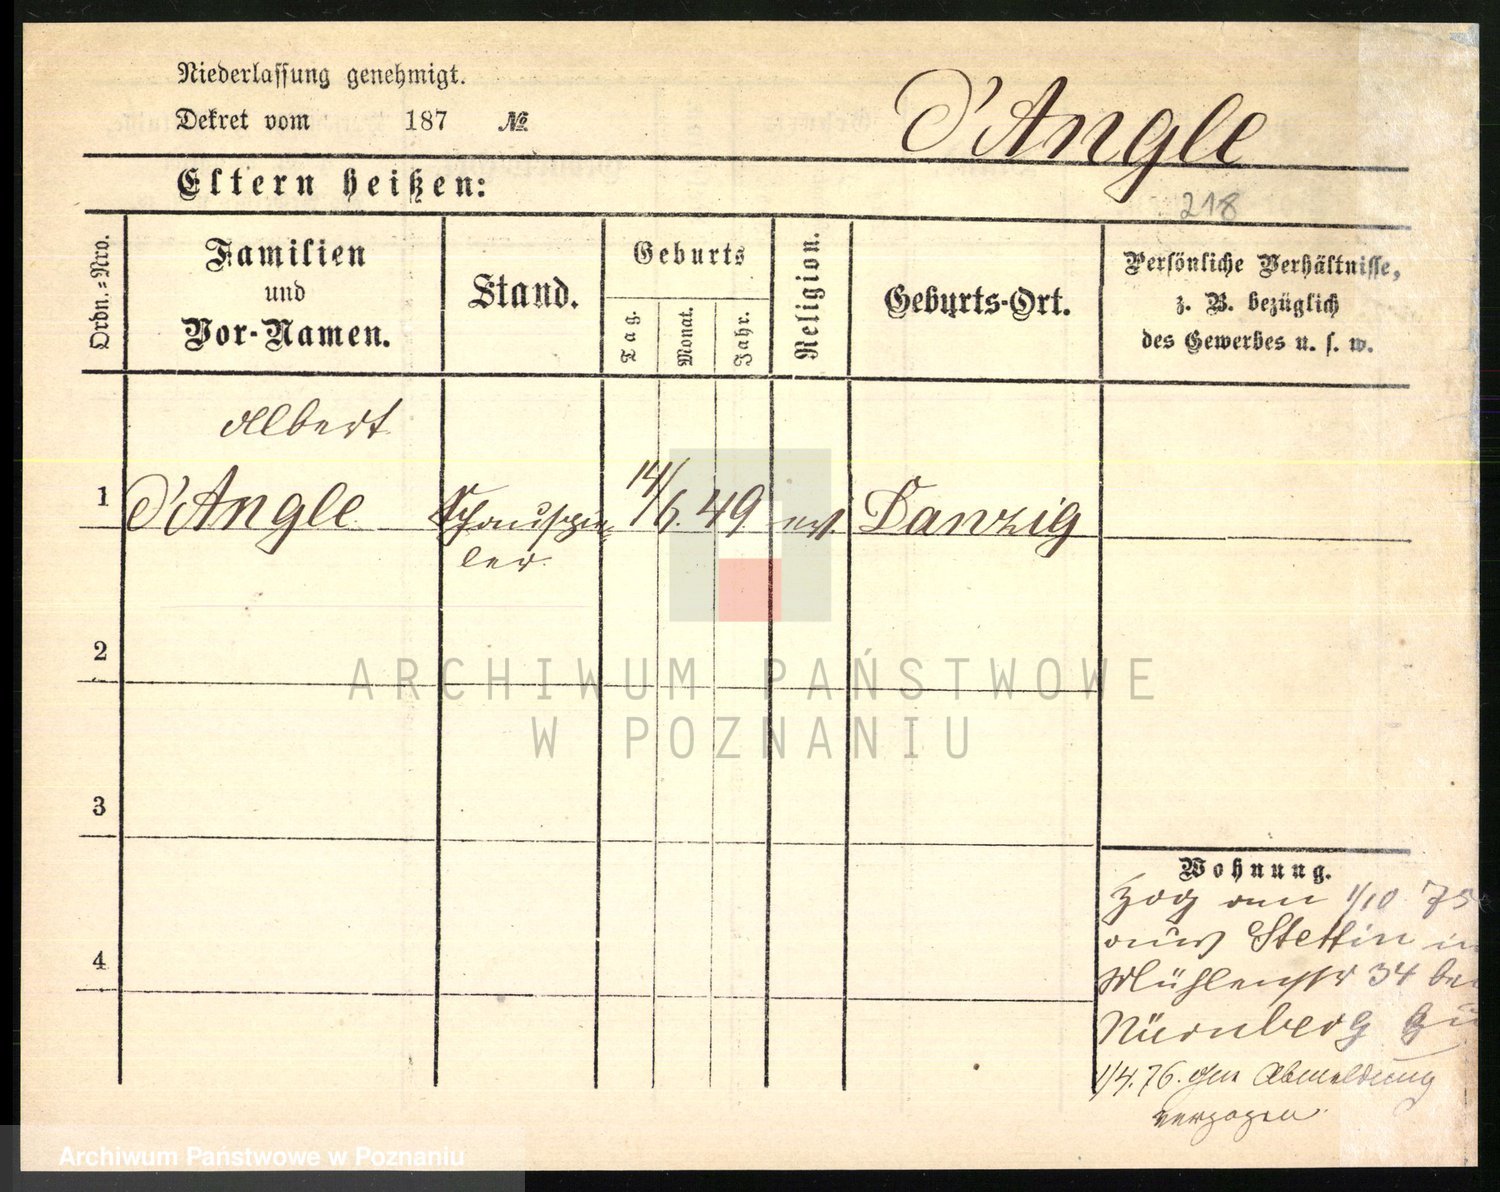 Niederlassung genehmigt.
Dekret vom 187 №
d'Angle
Eltern heißen:
218
Ordn.-Nro.
Familien
und
Vor-Namen.
Stand.
Geburts
Tag.
Monat.
Jahr.
Religion.
Geburts-Ort.
Persönliche Verhältnisse,
z. B. bezüglich
des Gewerbes u. s. w.
Albert
1 d'Angle Schauspie= 14/6. 49 ev. Danzig
ler
2
ARCHIWUM PAŃSTWOWE
W POZNANIU
3
Wohnung.
Zog am 1/10 75
aus Stettin in
Mühlenstr 34 bei
Nürnberg zu
4
1/4. 76. ohne Abmeldung
verzogen.
Archiwum Państwowe w Poznaniu